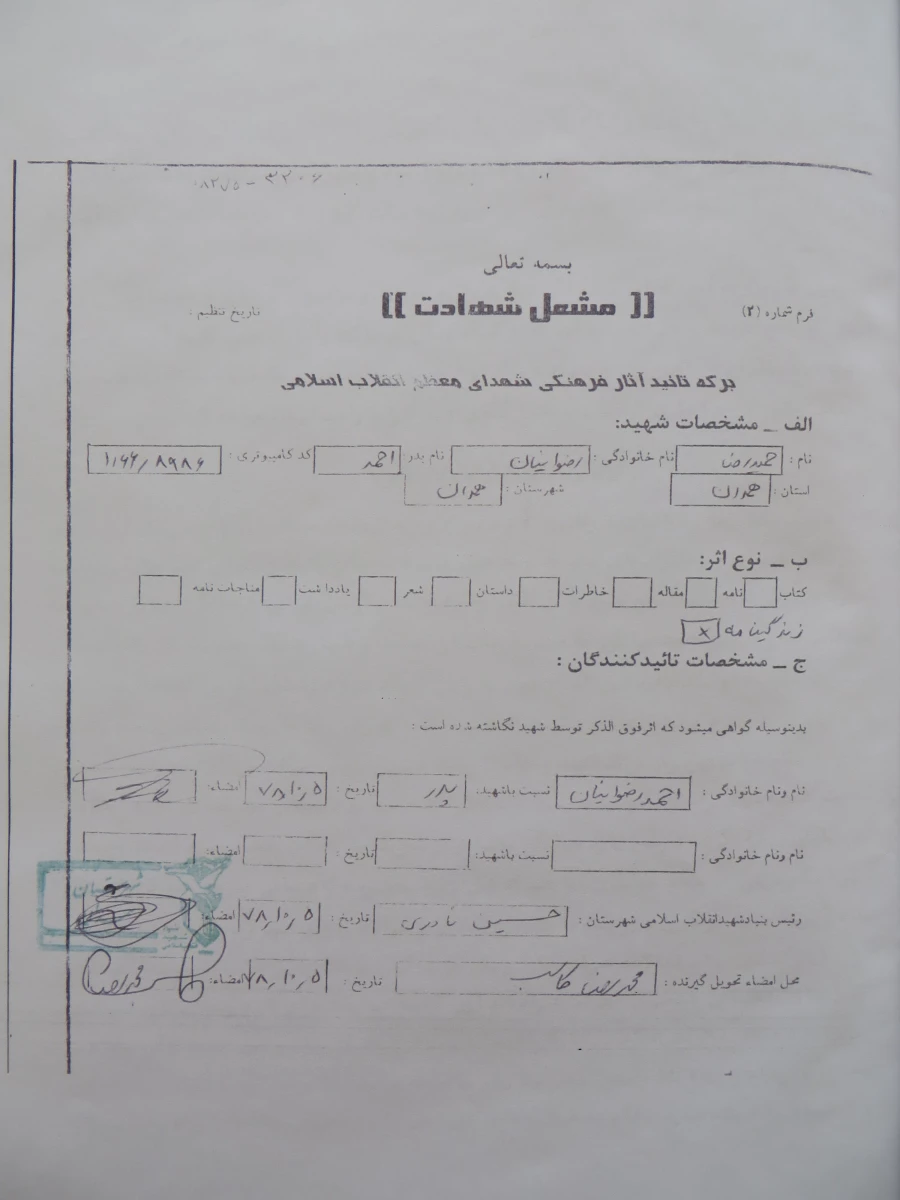 بسمه تعالی
فرم شماره (۲) [[ مشعل شهادت ]] تاریخ تنظیم :
برگه تائید آثار فرهنگی شهدای معظم انقلاب اسلامی
الف _ مشخصات شهید:
نام : حمیدرضا نام خانوادگی : رضوانیان نام پدر: احمد کد کامپیوتری : ۱۱۶۶/۸۹۸۶
استان : همدان شهرستان : همدان
ب _ نوع اثر:
کتاب نامه مقاله خاطرات داستان شعر یادداشت مناجات نامه
زندگینامه x
ج _ مشخصات تائیدکنندگان :
بدینوسیله گواهی میشود که اثرفوق الذکر توسط شهید نگاشته شده است :
نام ونام خانوادگی : احمد رضوانیان نسبت باشهید: پدر تاریخ : ۷۸/۱۰/۵ امضاء:
نام ونام خانوادگی : نسبت باشهید: تاریخ : امضاء:
رئیس بنیادشهیدانقلاب اسلامی شهرستان : حسین نادری تاریخ : ۷۸/۱۰/۵ امضاء:
محل امضاء تحویل گیرنده : محمدرضا تاریخ : ۷۸/۱۰/۵ امضاء: محمدرضا